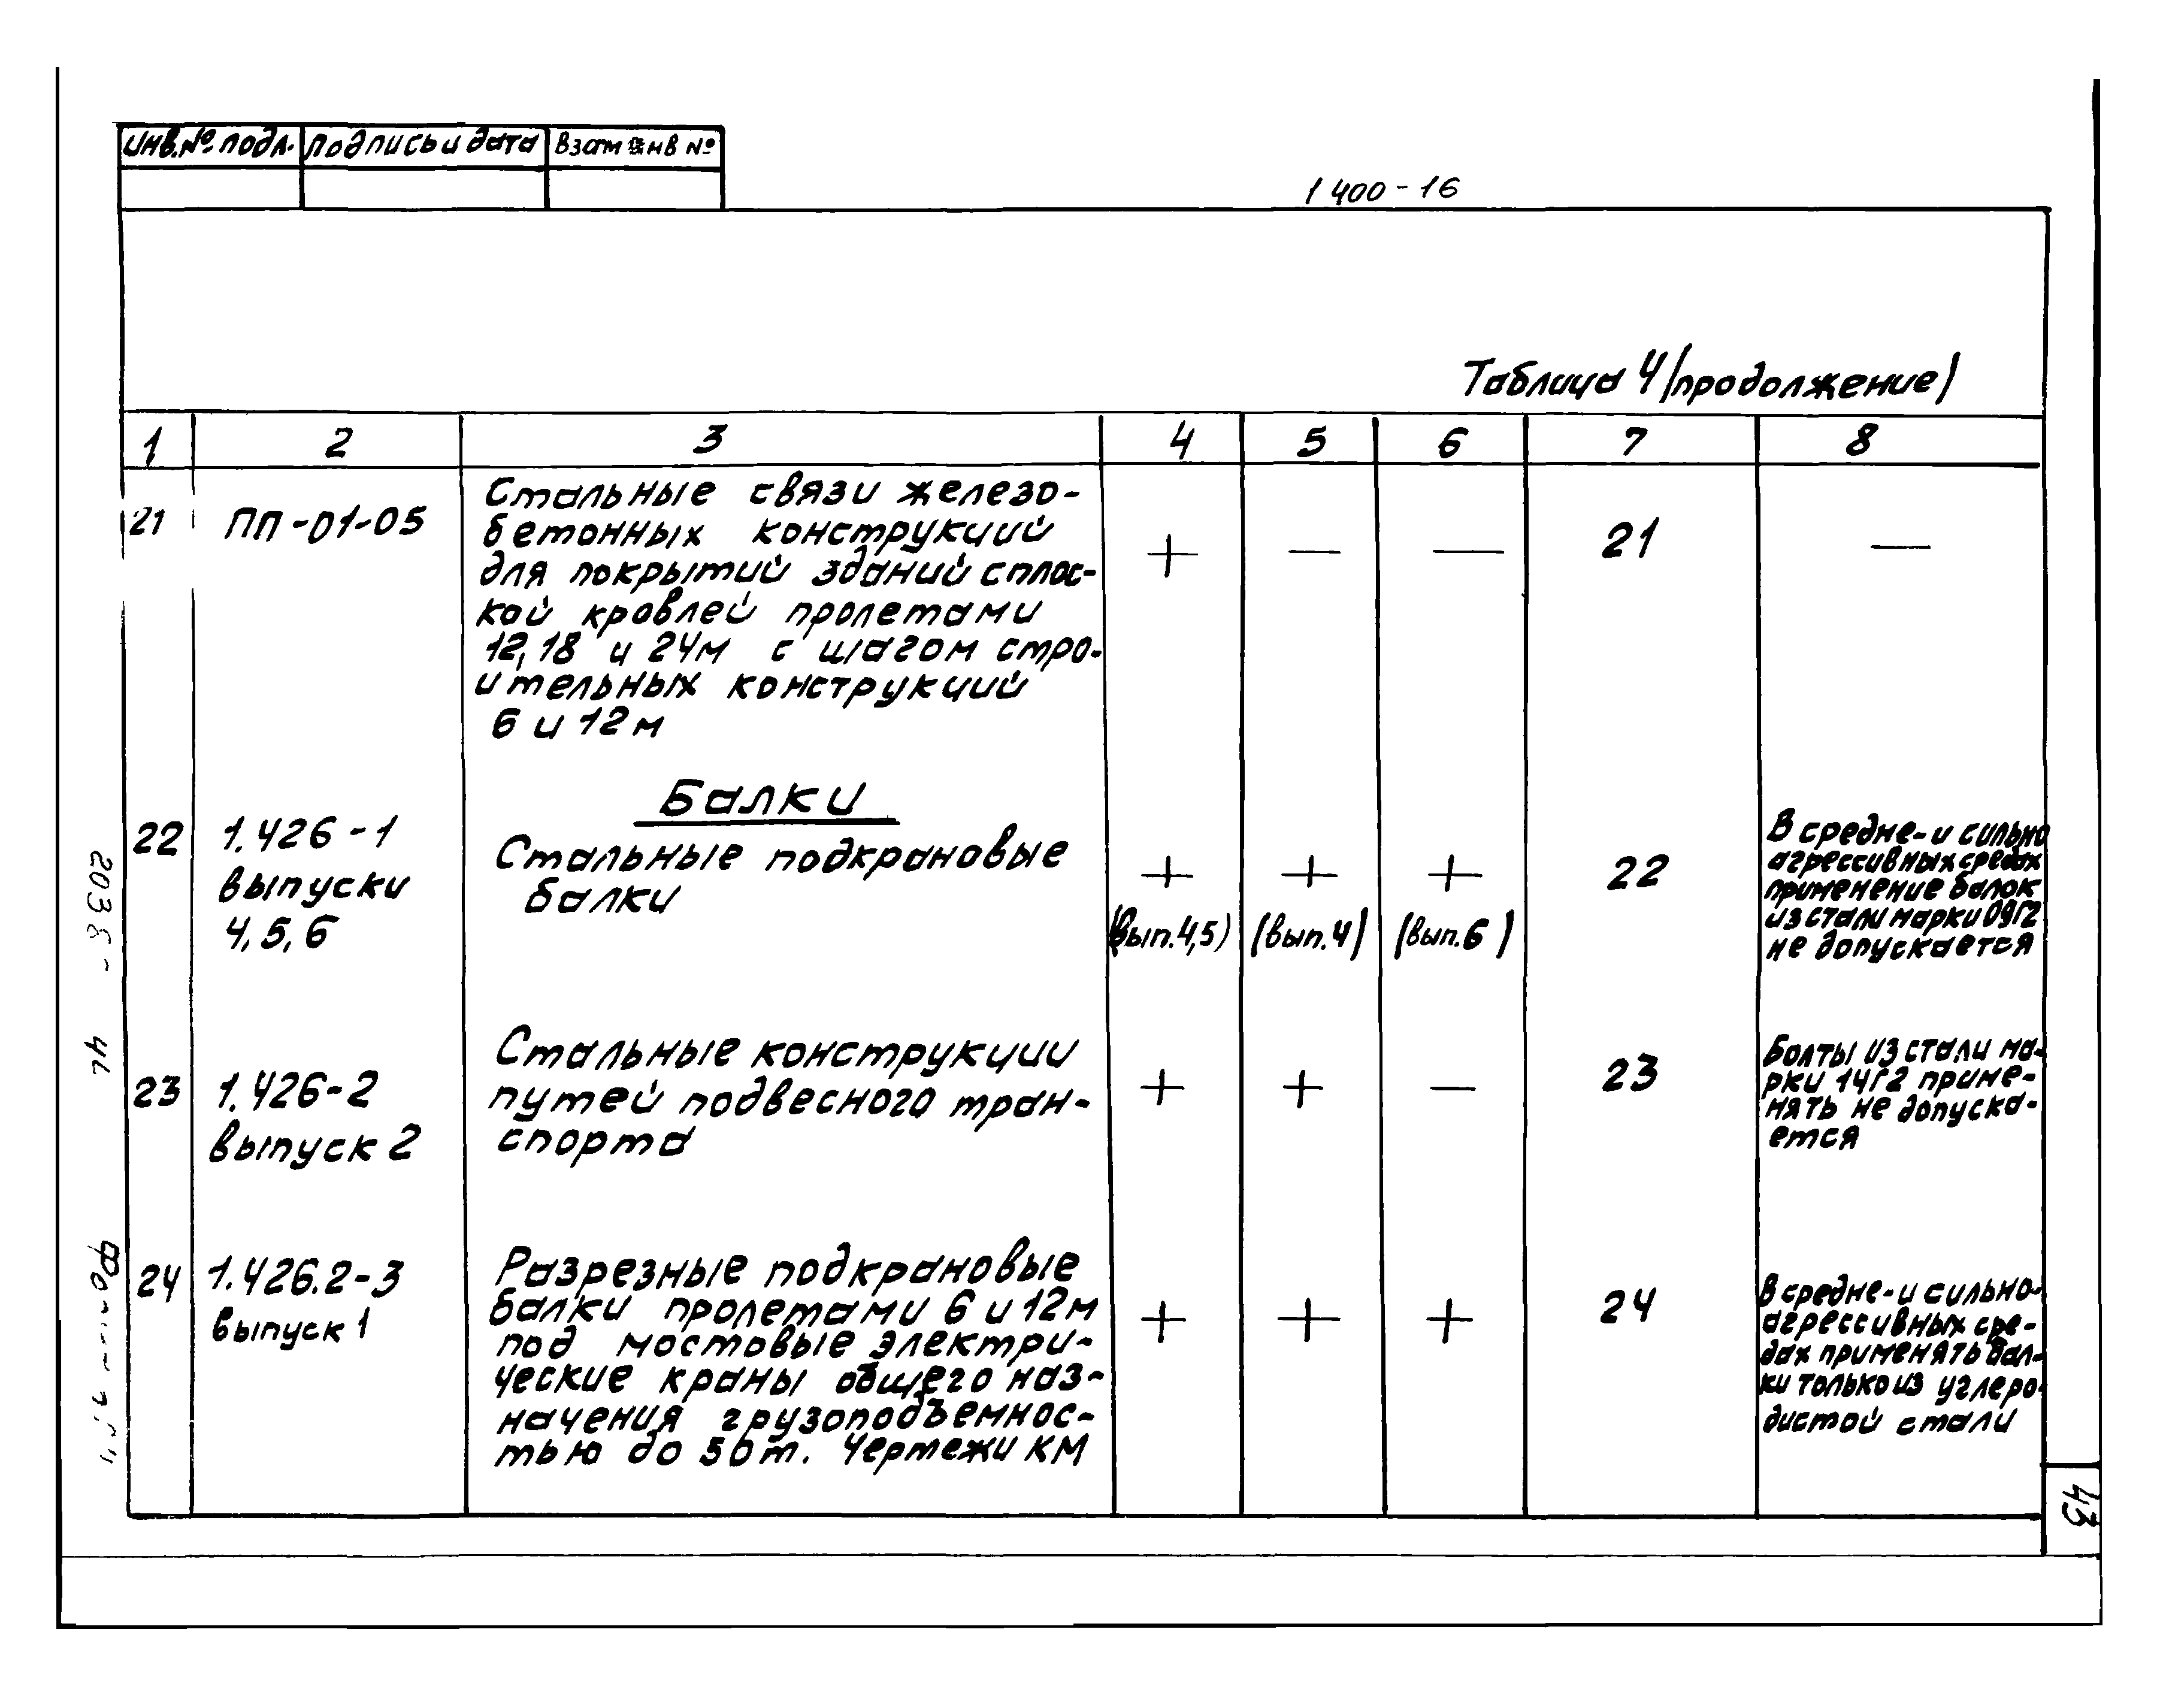 Инв.№ подл. Подпись и дата Взам инв №
1 400-16
Таблица 4 /продолжение/
1 2 3 4 5 6 7 8
21 ПП-01-05
Стальные связи железо-
бетонных конструкций
для покрытий зданий с плос-
кой кровлей пролетами
12, 18 и 24м с шагом стро-
ительных конструкций
6 и 12м
+ — — 21 —
Балки
22 1.426-1
выпуски
4, 5, 6
Стальные подкрановые
балки
+ + + 22
(вып.4,5) (вып.4) (вып.6)
В средне- и сильно
агрессивных средах
применение балок
из стали марки 09Г2
не допускается
23 1.426-2
выпуск 2
Стальные конструкции
путей подвесного тран-
спорта
+ + — 23
Болты из стали ма-
рки 14Г2 приме-
нять не допуска-
ется
24 1.426.2-3
выпуск 1
Разрезные подкрановые
балки пролетами 6 и 12м
под мостовые электри-
ческие краны общего наз-
начения грузоподъемнос-
тью до 50т. Чертежи КМ
+ + + 24
В средне- и сильно-
агрессивных сре-
дах применять бал-
ки только из углеро-
дистой стали
43